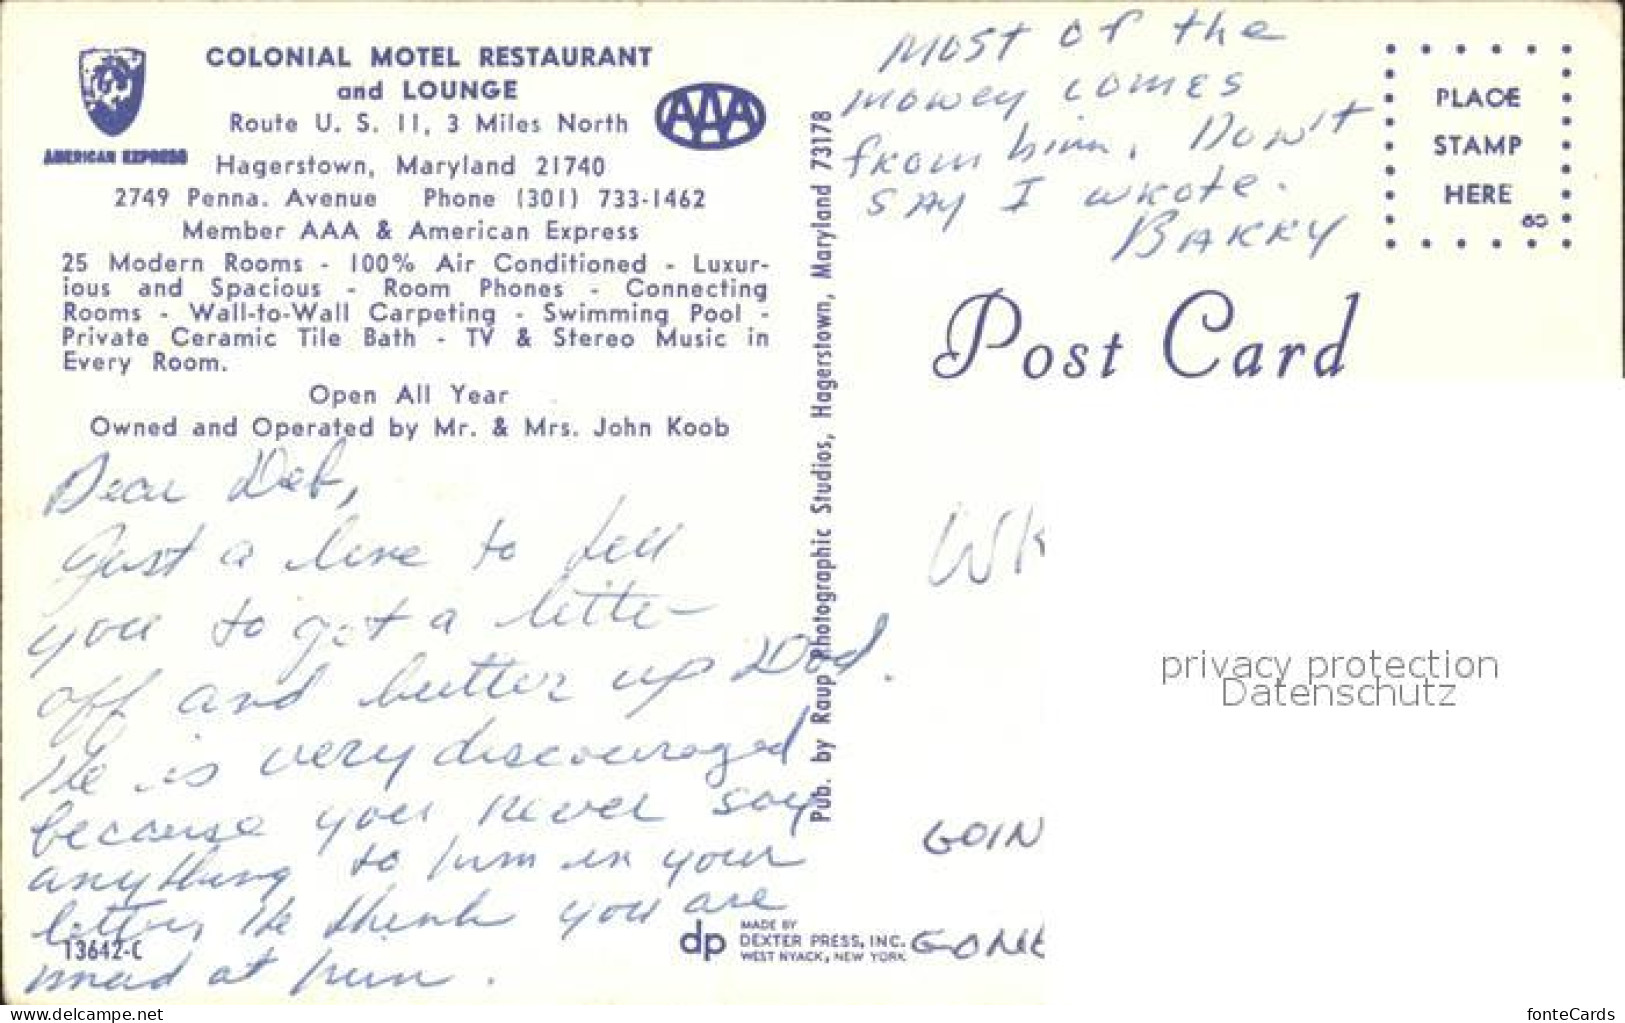 COLONIAL MOTEL RESTAURANT
and LOUNGE
Route U. S. 11, 3 Miles North
Hagerstown, Maryland 21740
2749 Penna. Avenue Phone (301) 733-1462
Member AAA & American Express
25 Modern Rooms - 100% Air Conditioned - Luxur-
ious and Spacious - Room Phones - Connecting
Rooms - Wall-to-Wall Carpeting - Swimming Pool -
Private Ceramic Tile Bath - TV & Stereo Music in
Every Room.
Open All Year
Owned and Operated by Mr. & Mrs. John Koob
AMERICAN EXPRESS
AAA
Dear Deb,
Just a line to tell
you to get a letter
off and butter up Dad.
He is very discouraged
because you never say
anything to him in your
letters, He think you are
mad at him.
13642-C
Pub. by Raup Photographic Studios, Hagerstown, Maryland 73178
dp
MADE BY
DEXTER PRESS, INC.
WEST NYACK, NEW YORK
Most of the
money comes
from him. Don't
SAY I wrote.
BARRY
PLACE
STAMP
HERE
Post Card
GOIN
privacy protection
Datenschutz
www.delcampe.net
fonteCards